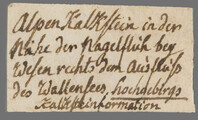 Alpen Kalkstein in der
Nähe der Nagelfluh bey
Wesen rechts dem Ausfluß
des Wallensees, hochgebirgs
Kalksteinformation